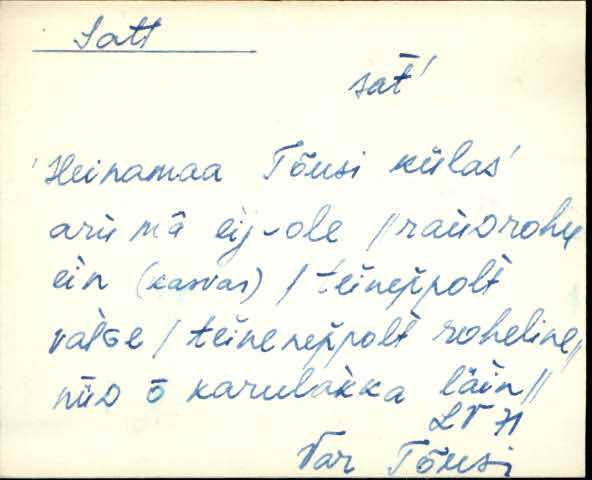 Satt
sat̄'
'Heinamaa Tõusi külas'
arū mā eij‿ole // raùᴅrohu
ein (kasvas) / teineppolt
valɢe / teineneppolt roheline //
nüᴅ ō karulakka läin //
LV 71
Var Tõusi